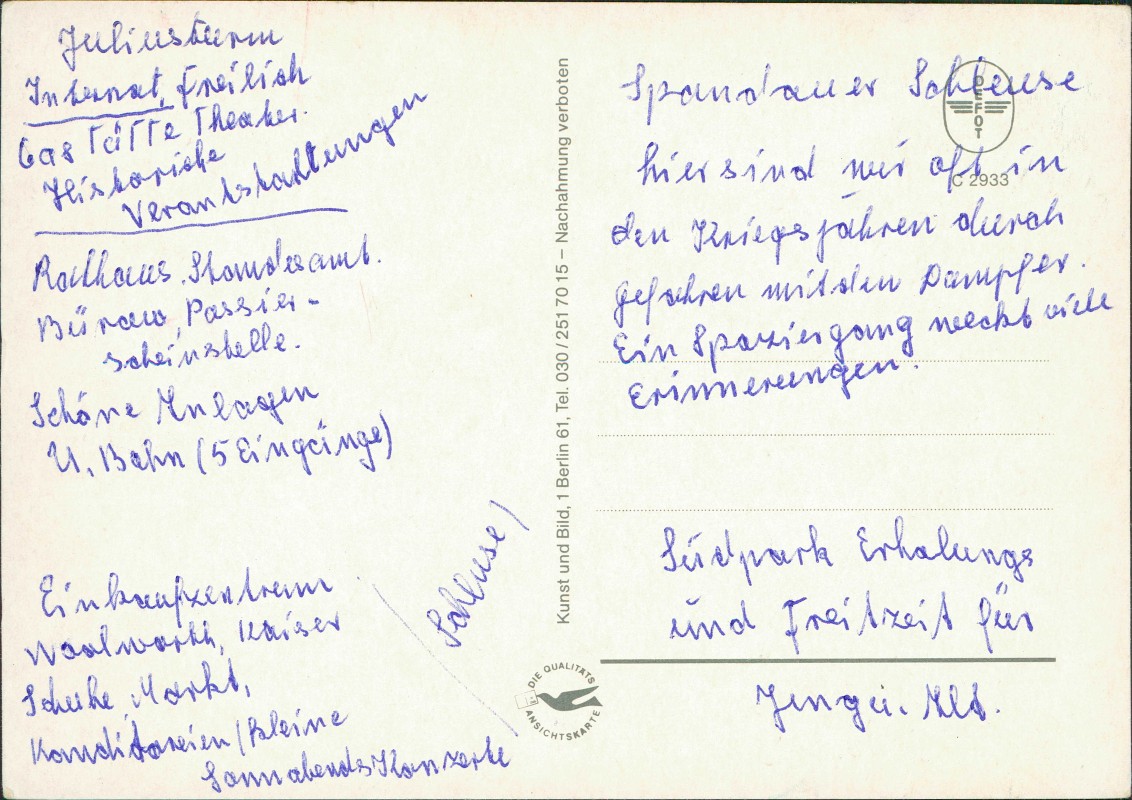 Juliusturm
Internat, Freilich
Gastätte Theater.
Historiche
Veranstaltungen
Rathaus. Standesamt.
Büraw, Passier-
scheinstelle.
Schöne Anlagen
U. Bahn (5 Eingänge)
Einkaufzentrum
Woolworth, Kaiser
Schuhe, Markt,
Kondidoreien / Kleine
Sonnabends Konzerte
Schleuse /
Kunst und Bild, 1 Berlin 61, Tel. 030 / 251 70 15 – Nachahmung verboten
DIE QUALITÄTS
ANSICHTSKARTE
DEFOT
C 2933
Spandauer Schleuse
hier sind wir oft in
den Kriegsjahren durch
gefahren mit den Dampfer.
Ein Spaziergang weckt viele
Erinnerungen.
Südpark Erholungs
und Freitzeit für
Jung u. Alt.